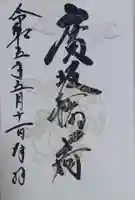 廣坂稲荷
令和五年五月十一日拝羽